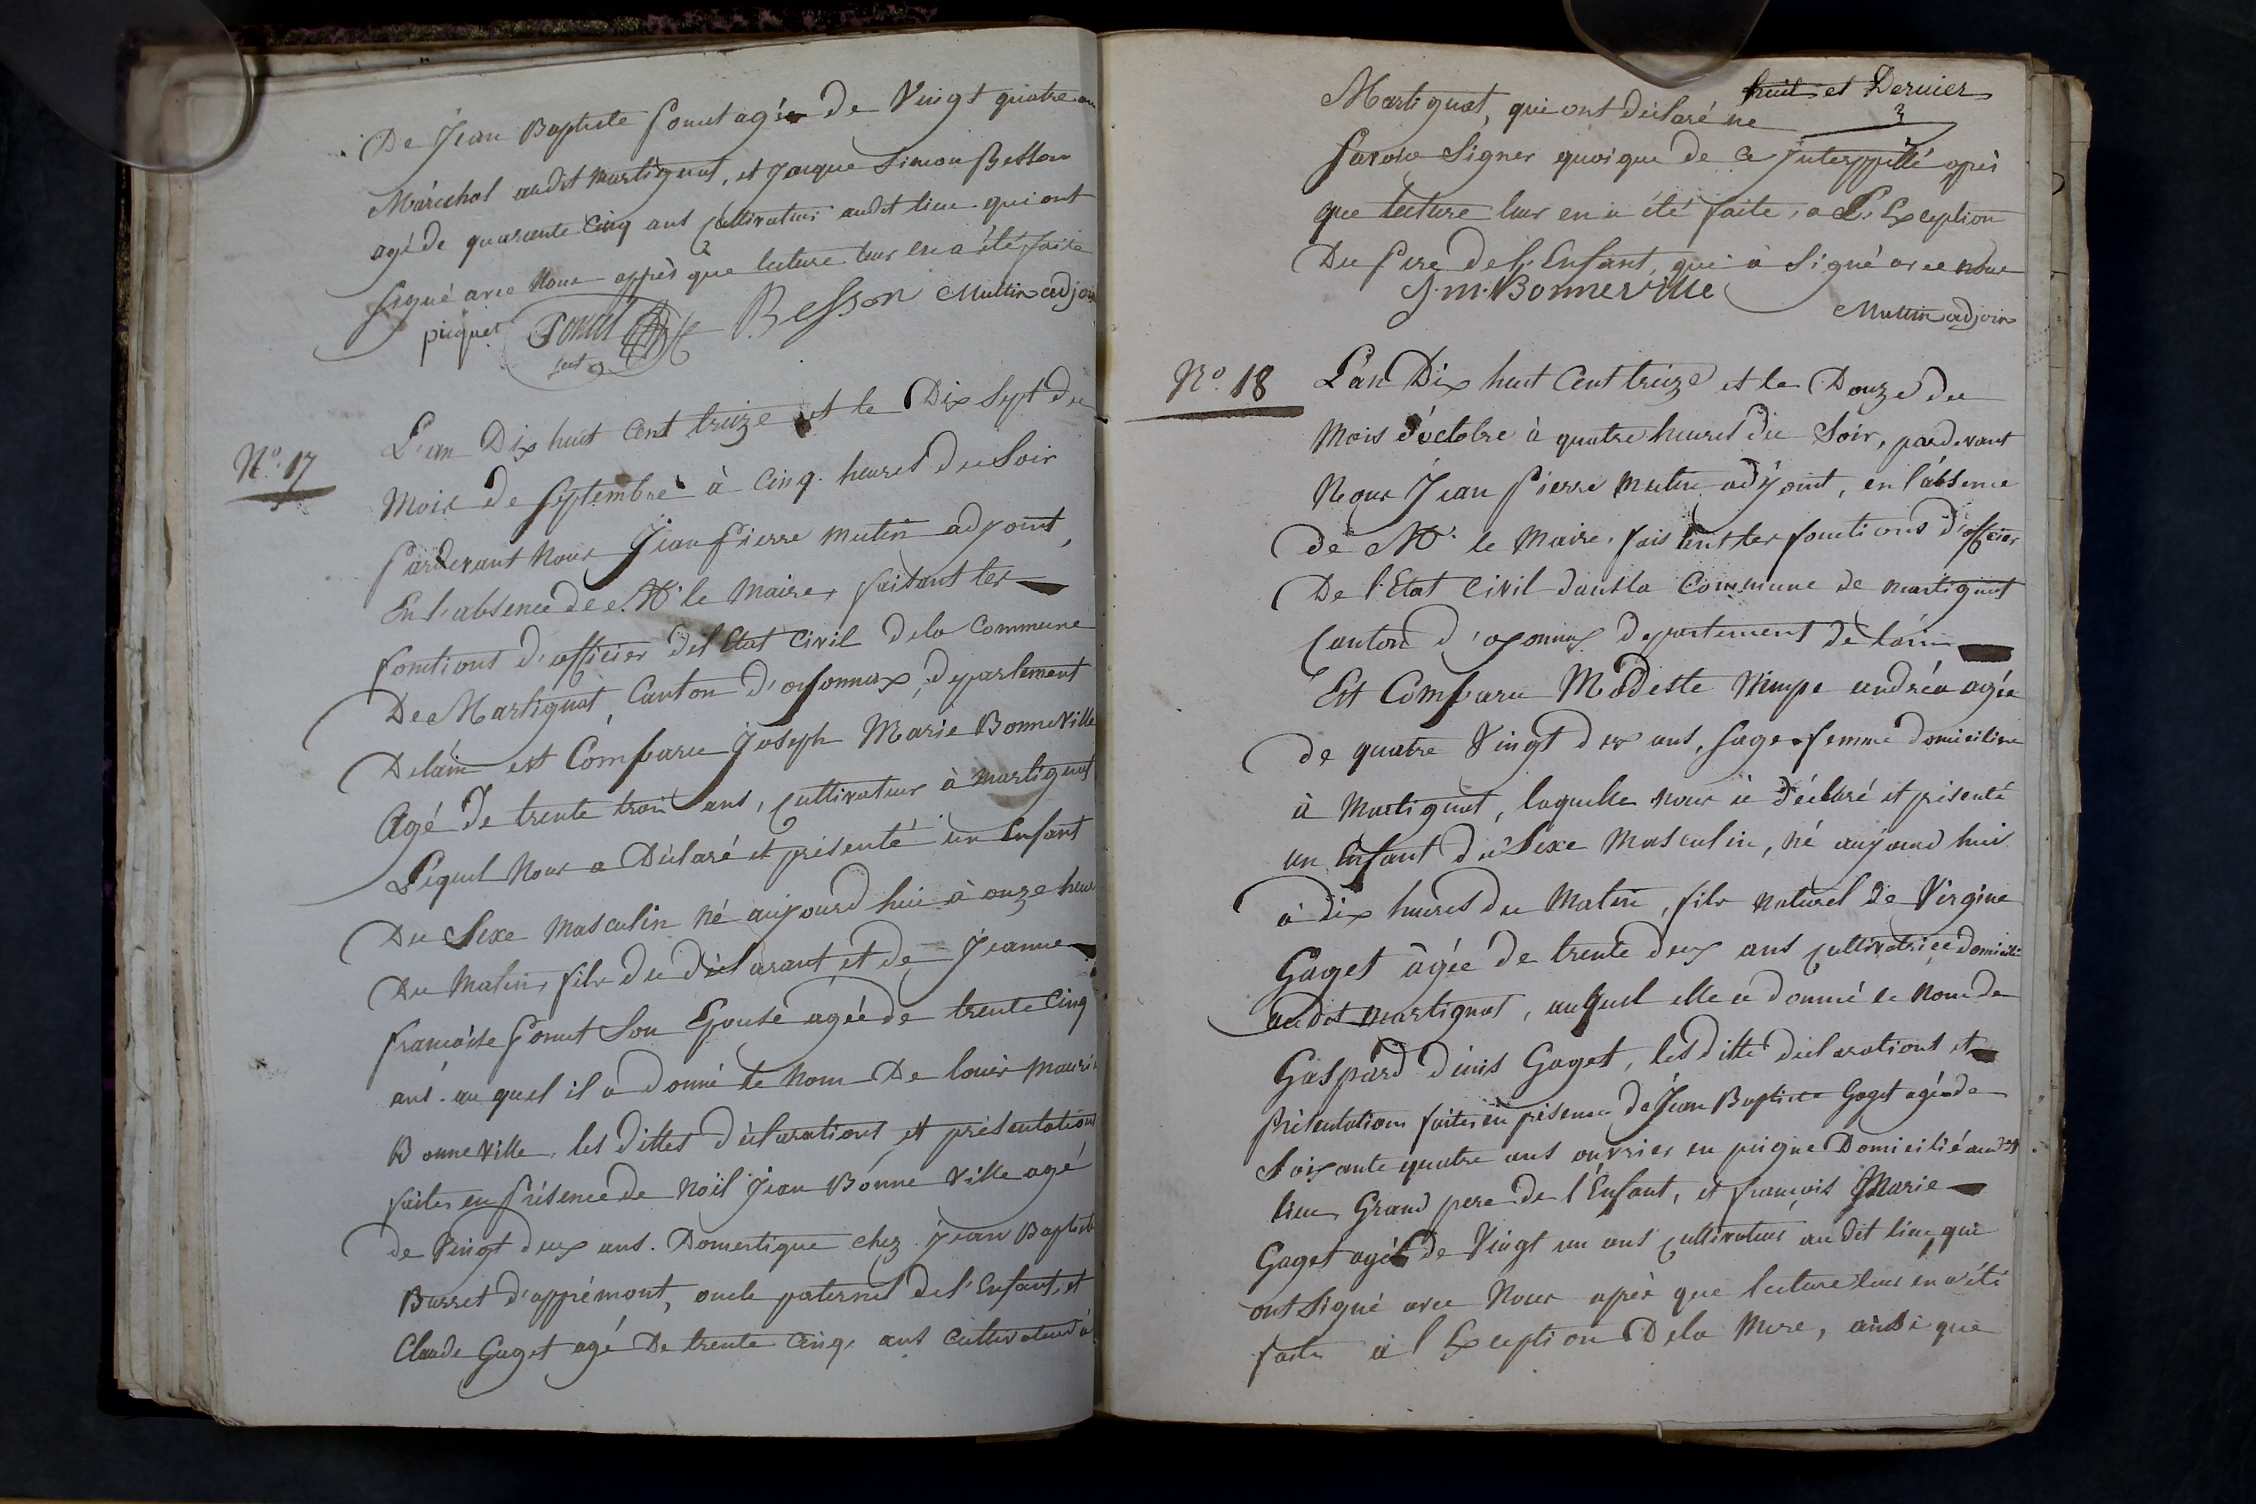 De Jean Baptiste Ponut agée de Vingt quatre ans
Maréchal audit martignat, et Jacque Simon Besson
agé de quarante Cinq ans Cultivateur audit lieu qui ont
signé avec Nous appès que lecture leur en a été faite
picquet Ponut Besson Mutin adjoin
N.º 17
L'an Dix huit Cent treize et le Dix Sept du
Mois de Septembre à Cinq heures du Soir
Pardevant Nous Jean Pierre mutin adjoint,
En l'absence de M.r le Maire, faisant les
fonctions d'officier del'Etat Civil dela Commune
De Martignat, Canton d'oyonnax, departement
Delain est Comparu Joseph Marie Bonneville
Agé De trente trois ans, Cultivateur à martignat
Lequel Nous a Déclaré et présenté un Enfant
Du Sexe Masculin né aujourd'hui à onze heures
Du Matin, fils du déclarant et de Jeanne
françoise Ponut Son Epouse agée de trente Cinq
ans. au quel il a donné le Nom De louis Mauri
Bonneville, les dittes déclarations et présentations
faites en Présence de Noël Jean Bonne Ville agé
de Vingt deux ans. Domestique chez Jean Baptiste
Burret d'appremont, oncle paternel del'Enfant, et
Claude Gaget agé De trente Cinq ans Cultivateur à
huit et Dernier
Martignat, qui ont déclaré ne
Savoir Signer quoique de ce Interppellé apès
que lecture leur en a été faite, a L'Exception
Du Pere del'Enfant, qui à Signé avec nous
J. m. Bonneville
Mutin adjoin
N.º 18
L'an Dix huit Cent treize et le Douze du
Mois d'octobre à quatre heures du Soir, pardevant
Nous Jean Pierre Mutin adjoint, en l'absence
de M.r le Maire, faisant les fonctions d'officier
De l'Etat Civil dans la Commune de martignat
Canton d'oyonnax departement de lain
Est Comparu Modeste Nimpe andréa agée
de quatre Vingt deux ans, Sage femme domiciliée
à Martignat, laquelle nous à déclaré et présenté
un Enfant du Sexe Masculin, né aujourd'hui
à Dix heures du Matin, fils naturel de Virgine
Gaget âgée de trente deux ans Cultivatrice domicilié
audit Martignat, auquel elle a donné le Nom de
Gaspard dénis Gaget, les ditte déclarations et
Présentations faites en présence de Jean Baptiste Gaget agé de
Soixante quatre ans ouvrier en peigne Domicilié audit
lieu, Grand pere de l'Enfant, et françois Marie
Gaget agé de Vingt un ans Cultivateur audit lieu, qui
ont Signé avec Nous apès que lecture leur en a été
faite à l'Exception Dela Mere, ainsi que